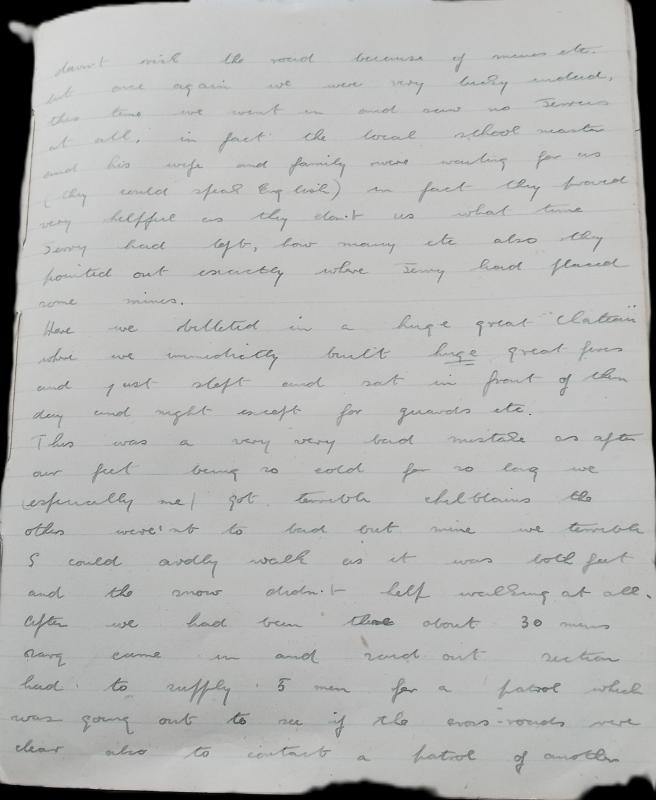 daren't risk the road because of mines etc.
but once again we were very lucky indeed,
this time we went in and saw no Jerries
at all. in fact the local school master
and his wife and family were waiting for us
(they could speak English) in fact they proved
very helpful as they don't us what time
Jerry had left, how many etc also they
pointed out exactly where Jerry had placed
some mines.
Here we billeted in a huge great "Clateau"
where we immedictly built huge great fires
and just slept and sat in front of them
day and night except for guards etc.
This was a very very bad mistake as after
our feet being so cold for so long we
(especually me) got terrible chilblains the
others were'nt to bad but mine we terrible
I could ardly walk as it was both feet
and the snow didn't help walking at all.
After we had been there about 30 mins
Sarg came in and said out section
had to supply 5 men for a patrol which
was going out to see if the cross-roads were
clear also to contact a patrol of another